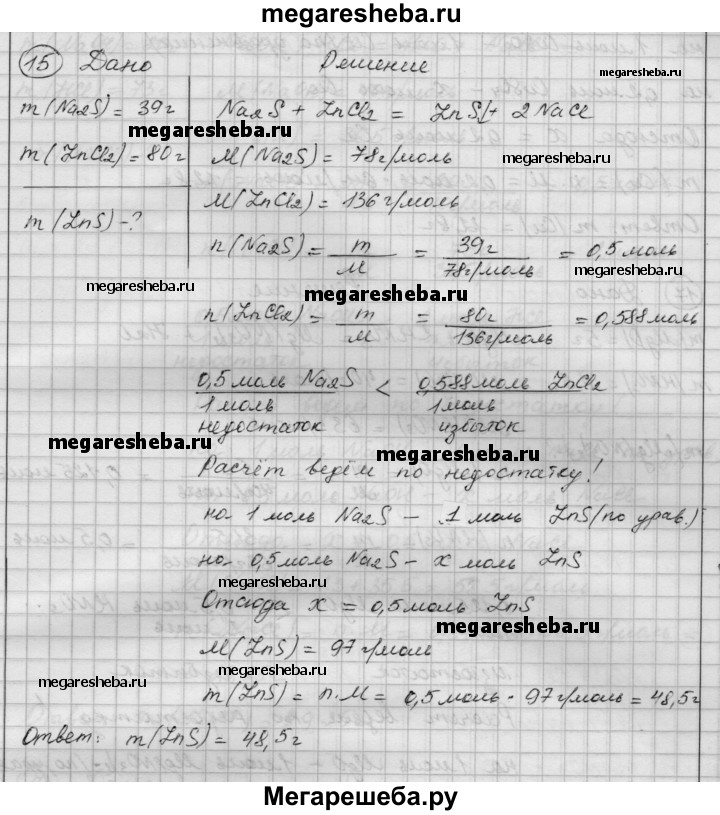 megaresheba.ru
15 Дано Решение
megaresheba.ru
m(Na2S) = 39г Na2S + ZnCl2 = ZnS↓ + 2NaCl
m(ZnCl2) = 80г M(Na2S) = 78г/моль
megaresheba.ru
M(ZnCl2) = 136г/моль
m(ZnS) - ?
n(Na2S) = m/M = 39г/78г/моль = 0,5 моль
megaresheba.ru
megaresheba.ru
megaresheba.ru
n(ZnCl2) = m/M = 80г/136г/моль = 0,588моль
0,5 моль Na2S / 1 моль < 0,588 моль ZnCl2 / 1 моль
недостаток избыток
megaresheba.ru
megaresheba.ru
Расчёт ведём по недостатку!
на 1 моль Na2S – 1 моль ZnS (по урав.)
на 0,5 моль Na2S – x моль ZnS
megaresheba.ru
Отсюда x = 0,5 моль ZnS
megaresheba.ru
M(ZnS) = 97 г/моль
megaresheba.ru
megaresheba.ru
m(ZnS) = n.M = 0,5 моль · 97 г/моль = 48,5г
Ответ: m(ZnS) = 48,5г
Мегарешеба.ру